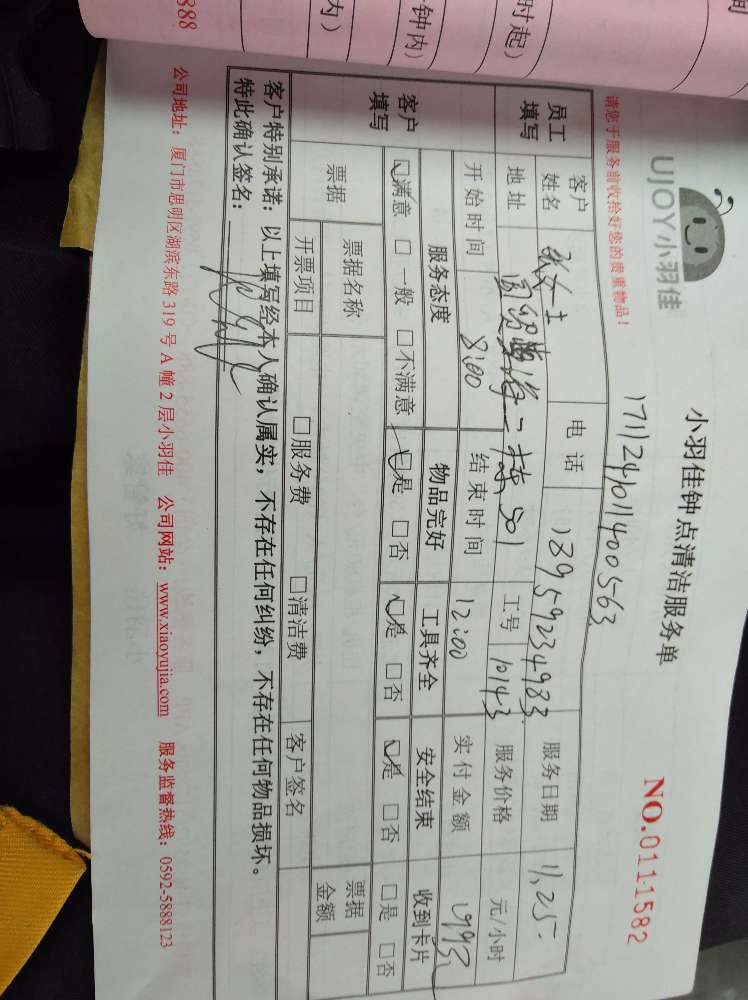 888
钟内）
时起）
内）
间
UJOY小羽佳
小羽佳钟点清洁服务单
NO.0111582
请您于服务前收拾好您的贵重物品！
171124101400563
员工填写
客户姓名
张女士
电话
18959234983
服务日期
11,25
地址
二楼501
工号
10143
服务价格
元/小时
开始时间
8:00
结束时间
12:00
实付金额
客户填写
服务态度
物品完好
工具齐全
安全结束
收到卡片
☑满意 □一般 □不满意
☑是 □否
☑是 □否
☑是 □否
□是 □否
票据
票据名称
开票项目
□服务费 □清洁费
客户签名
票据金额
客户特别承诺：以上填写经本人确认属实，不存在任何纠纷，不存在任何物品损坏。
特此确认签名：
公司地址：厦门市思明区湖滨东路 319 号 A 幢 2 层小羽佳 公司网站：www.xiaoyujia.com 服务监督热线：0592-5888123